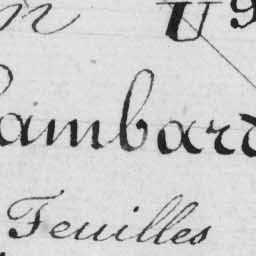 n U 9
ambard
Feuilles